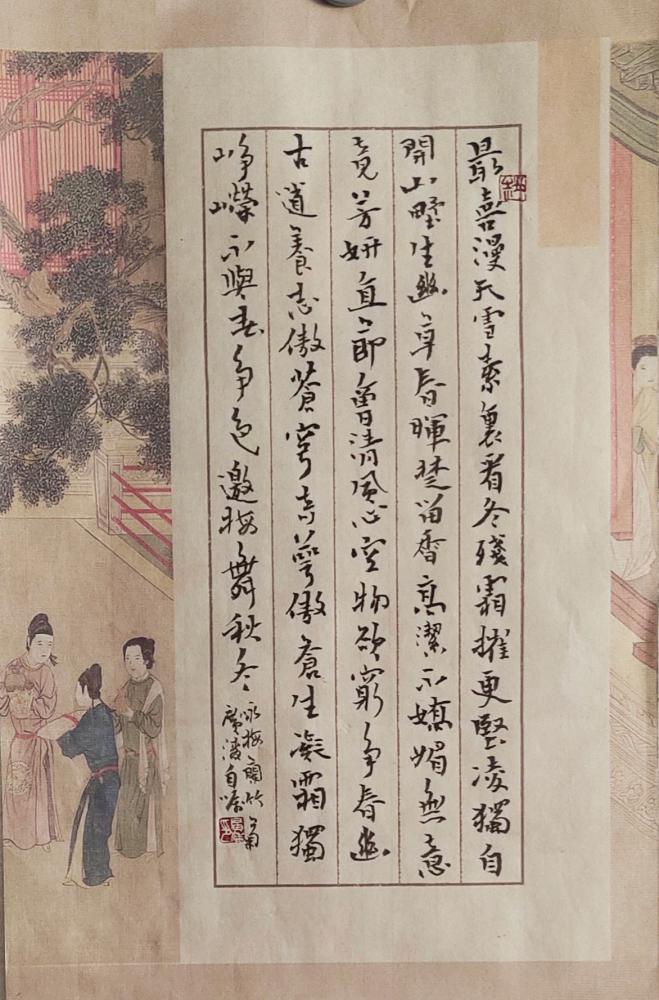 最喜漫天雪素裹看冬殘霜摧更堅凌獨自
開山野生幽草春暉楚留香高潔不嬌媚無意
竟芳妍直節清風心空物欲窮爭春幽
古道養志傲蒼穹萼傲蒼生凝霜獨
崢嶸不與春爭色邀梅舞秋冬
咏梅蘭竹菊
廣陵自吟